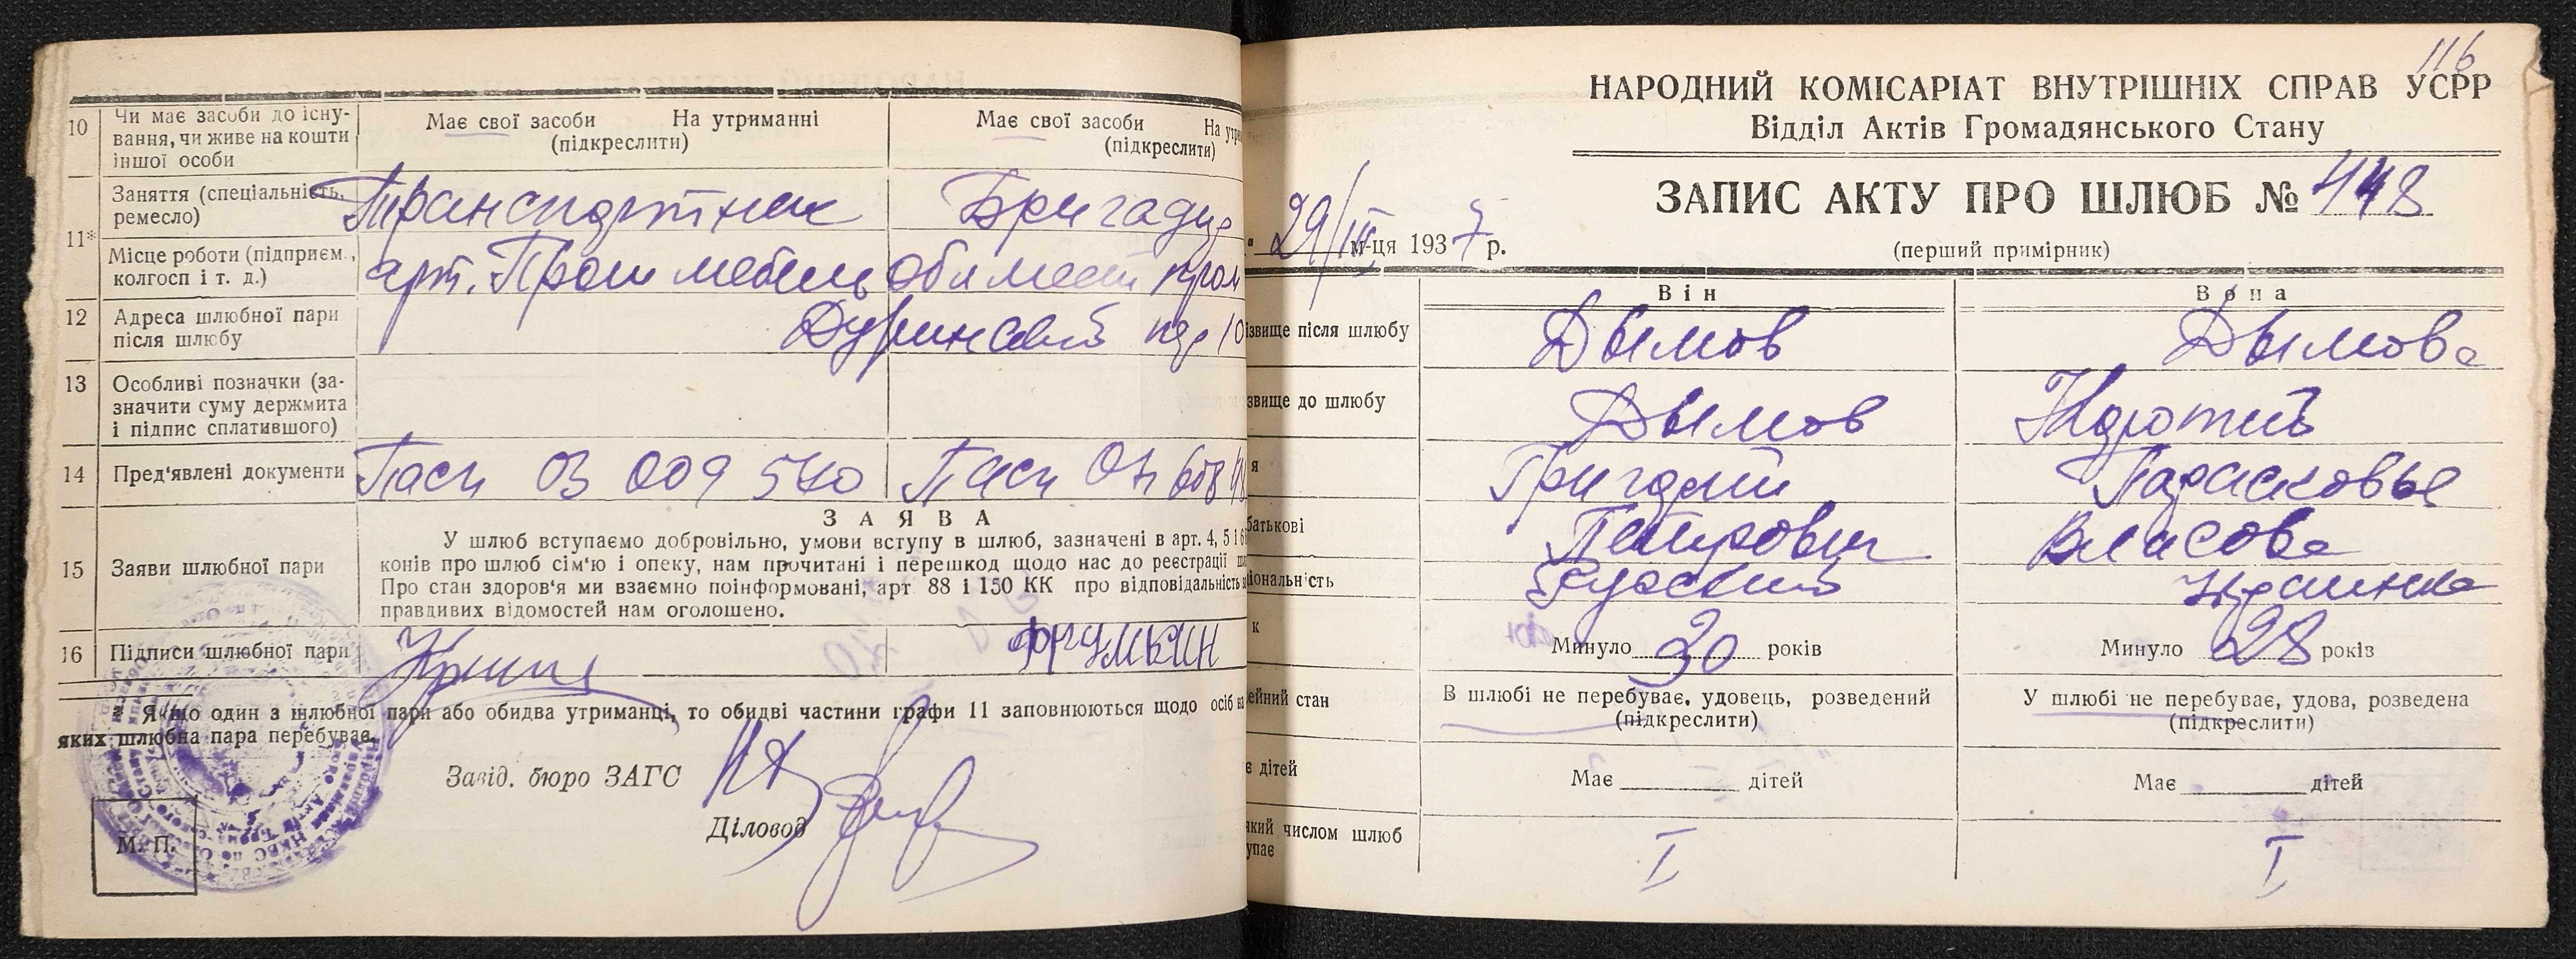 10
Чи має засоби до існу-
вання, чи живе на кошти
іншої особи
Має свої засоби На утриманні
(підкреслити)
Має свої засоби На утри
(підкреслити)
11*
Заняття (спеціальність,
ремесло)
Транспортник
Бригадир
Місце роботи (підприєм.,
колгосп і т. д.)
арт. Пром мебель
Обл мест пром
12
Адреса шлюбної пари
після шлюбу
пер 10
13
Особливі позначки (за-
значити суму держмита
і підпис сплатившого)
14
Пред'явлені документи
Пасп ОЗ 009 540
Пасп
15
Заяви шлюбної пари
ЗАЯВА
У шлюб вступаємо добровільно, умови вступу в шлюб, зазначені в арт. 4, 5 і 6
конів про шлюб сім'ю і опеку, нам прочитані і перешкод щодо нас до реєстрації
Про стан здоров'я ми взаємно поінформовані, арт 88 і 150 КК про відповідальність
правдивих відомостей нам оголошено.
16
Підписи шлюбної пари
Якщо один з шлюбної пари або обидва утриманці, то обидві частини графи 11 заповнюються щодо осіб на
яких шлюбна пара перебуває.
Завід. бюро ЗАГС
Діловод
М. П.
116
НАРОДНИЙ КОМІСАРІАТ ВНУТРІШНІХ СПРАВ УСРР
Відділ Актів Громадянського Стану
ЗАПИС АКТУ ПРО ШЛЮБ № 448
(перший примірник)
29/III м-ця 1937 р.
Він
Вона
ізвище після шлюбу
Дымов
Дымова
звище до шлюбу
Дымов
я
Григорий
Парасковья
батькові
Петрович
Власова
іональність
Русский
Украинка
к
Минуло 30 років
Минуло 28 років
ейний стан
В шлюбі не перебуває, удовець, розведений
(підкреслити)
У шлюбі не перебуває, удова, розведена
(підкреслити)
є дітей
Має дітей
Має дітей
який числом шлюб
упає
I
I